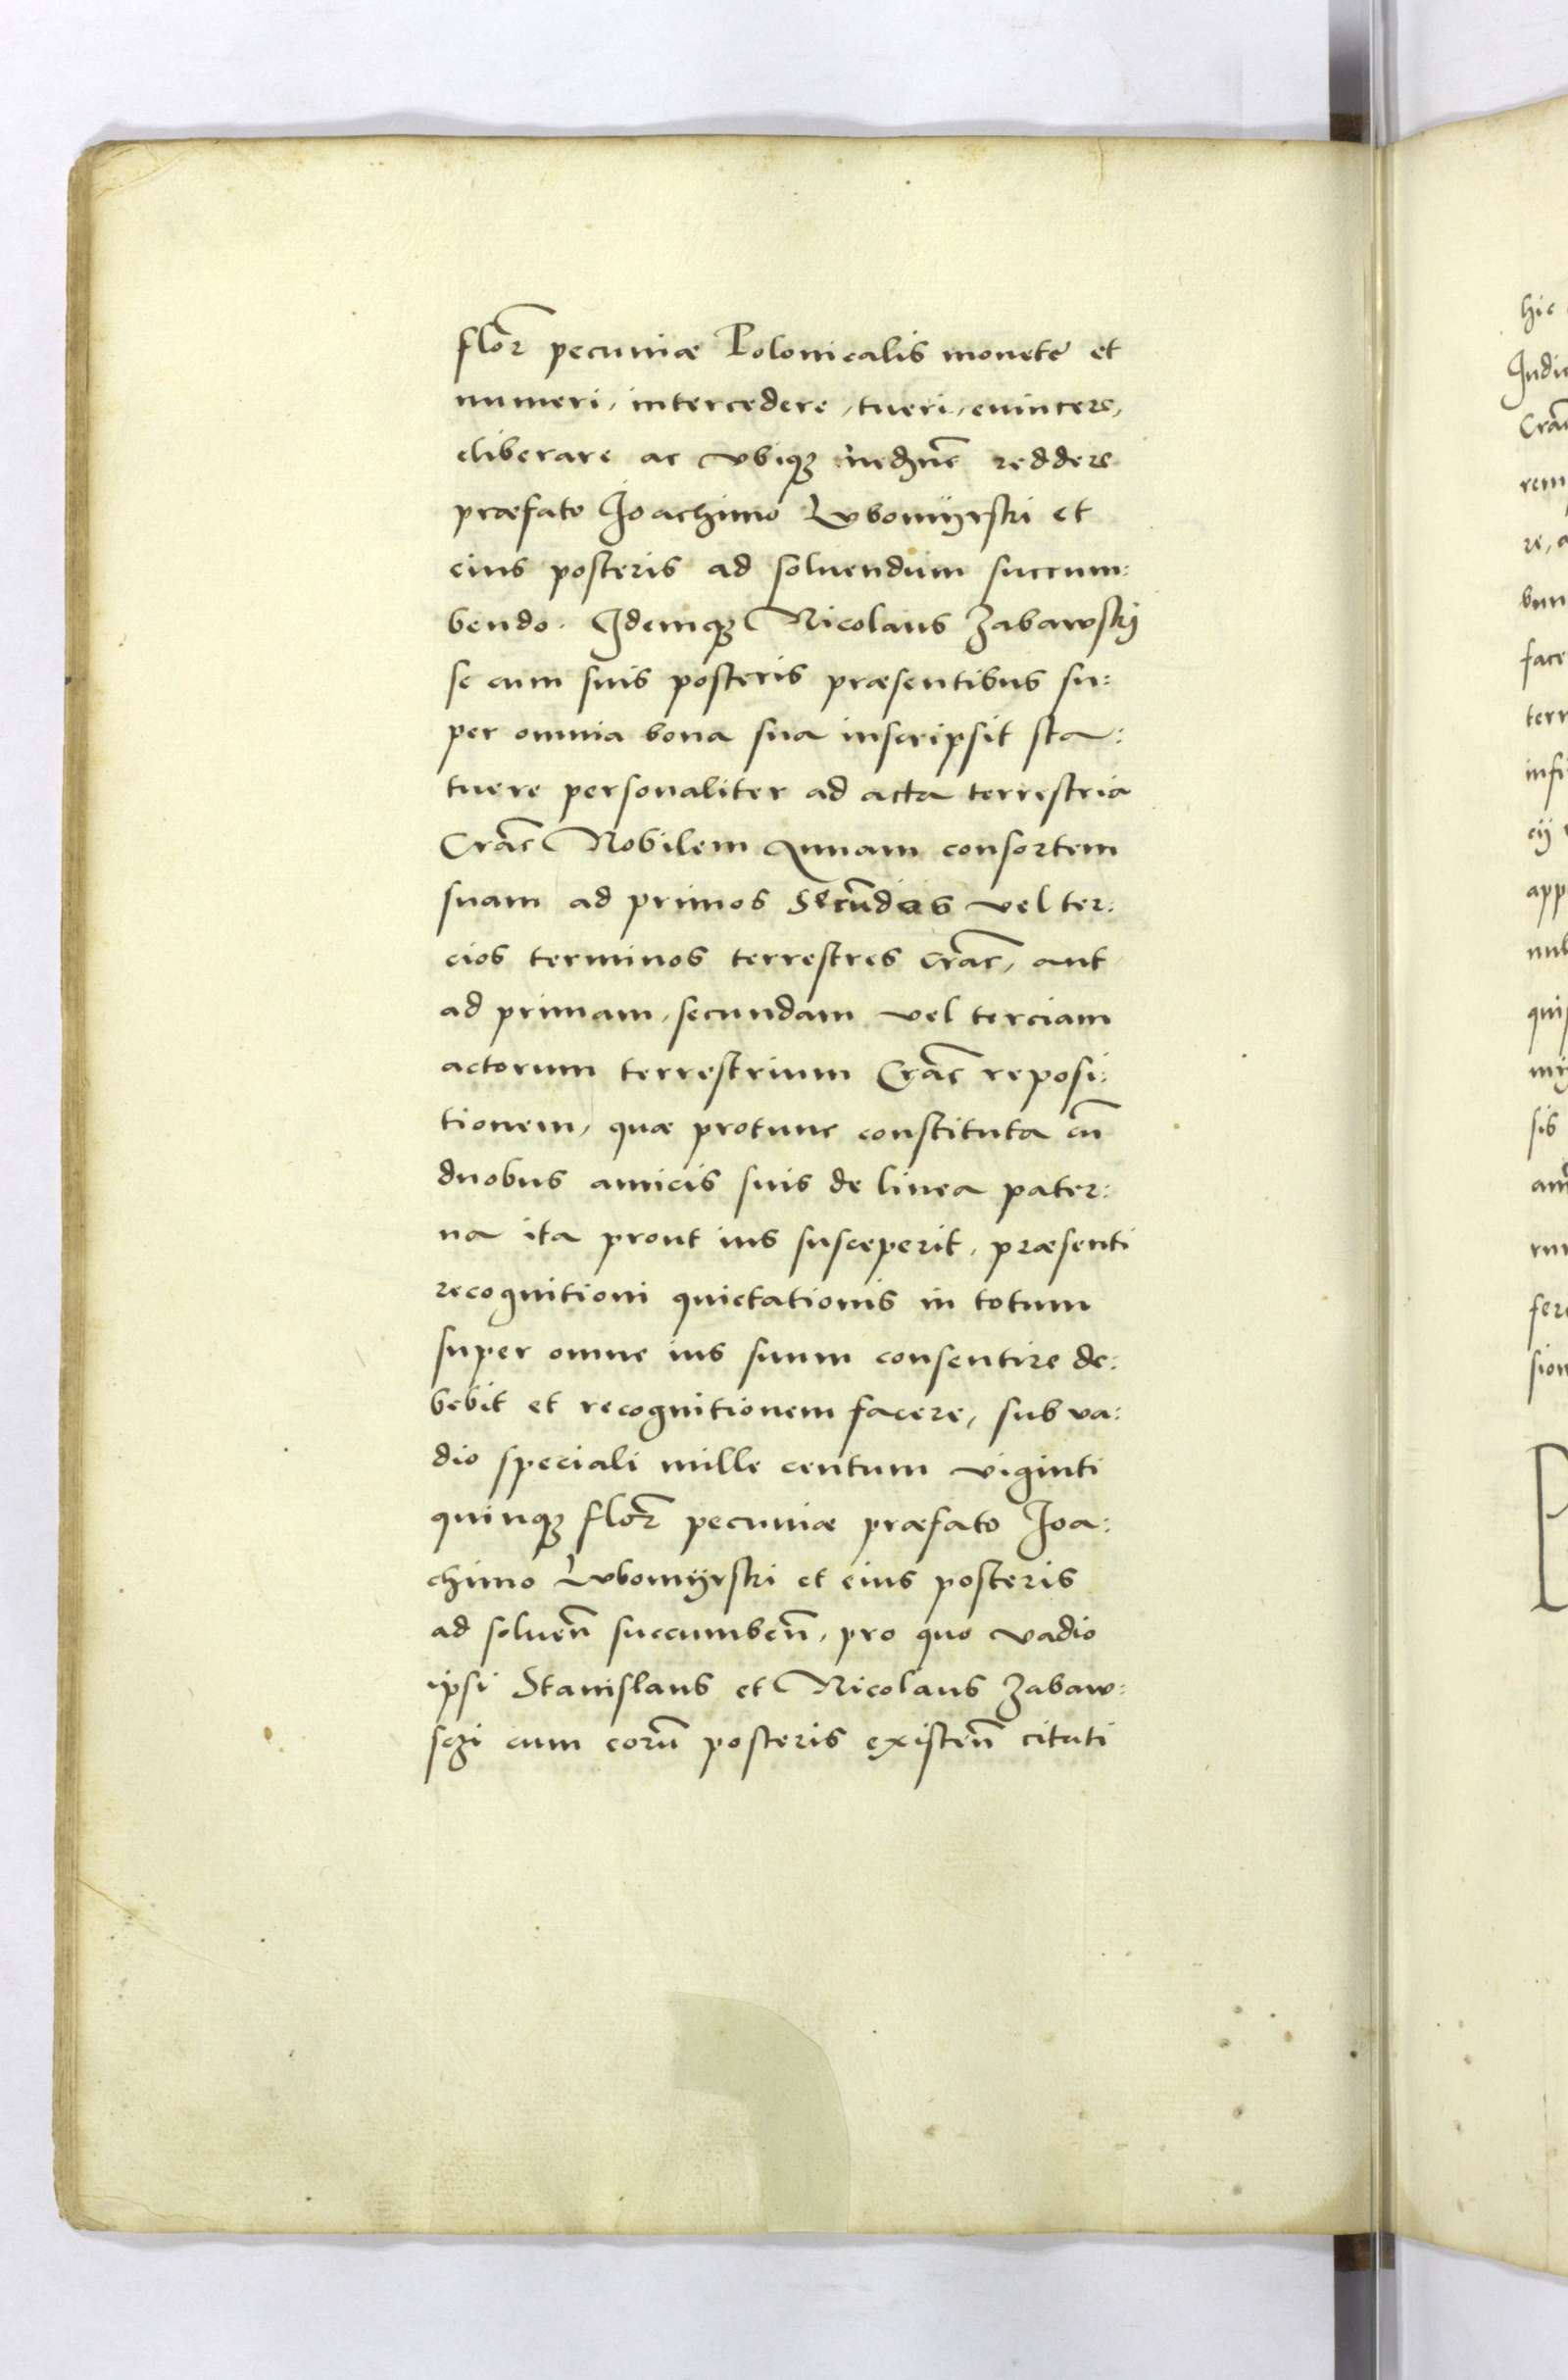 flor̃ pecuniæ Polonicalis monete et
numeri, intercedere, tueri, euincere,
eliberare ac vbiqꝫ reddere
præfato Joachimo Lvbomÿrski et
eius posteris ad soluendum succum:
bendo. Idemqꝫ Nicolaus Zabawskj
se cum suis posteris præsentibus su:
per omnia bona sua inscripsit sta:
tuere personaliter ad acta terrestria
Crac̃ Nobilem Annam consortem
suam ad primos secũdos vel ter:
cios terminos terrestres Crac̃, aut
ad primam, secundam vel terciam
actorum terrestrium Crac̃ reposi:
tionem, quæ protunc constituta cũ
duobus amicis suis de linea pater:
na ita prout ius susceperit, præsenti
recognitioni quietationis in totum
super omne ius suum consentire de:
bebit et recognitionem facere, sub va:
dio speciali mille centum viginti
quinqꝫ flor̃ pecuniæ præfato Joa:
chimo Lvbomÿrski et eius posteris
ad soluen̄ succumben̄, pro quo vadio
ipsi Stanislaus et Nicolaus Zabaw:
sczi cum eorũ posteris existen̄ citati
hic
Cra
rem
re, a
bun
face
terr
infi
cij
app
nul
qui
sis
fere
sion